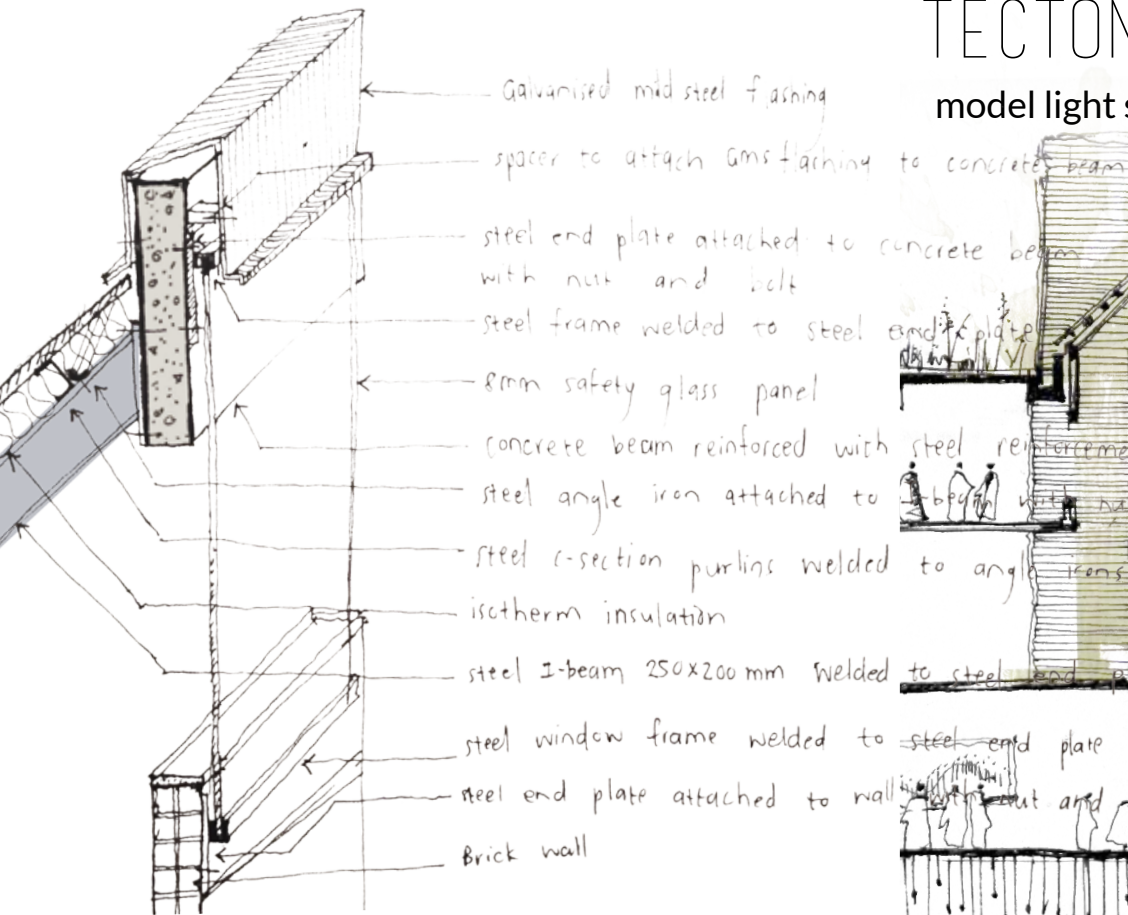 TECTON
model light s
Galvanised mild steel flashing
spacer to attach Gms flashing to concrete beam
steel end plate attached to concrete beam
with nut and bolt
steel frame welded to steel end plate
8mm safety glass panel
concrete beam reinforced with steel reinforceme
steel angle iron attached to I-beam with nu
steel c-section purlins welded to angle irons
isotherm insulation
steel I-beam 250x200 mm welded to steel end p
steel window frame welded to steel end plate
steel end plate attached to wall with nut and
Brick wall